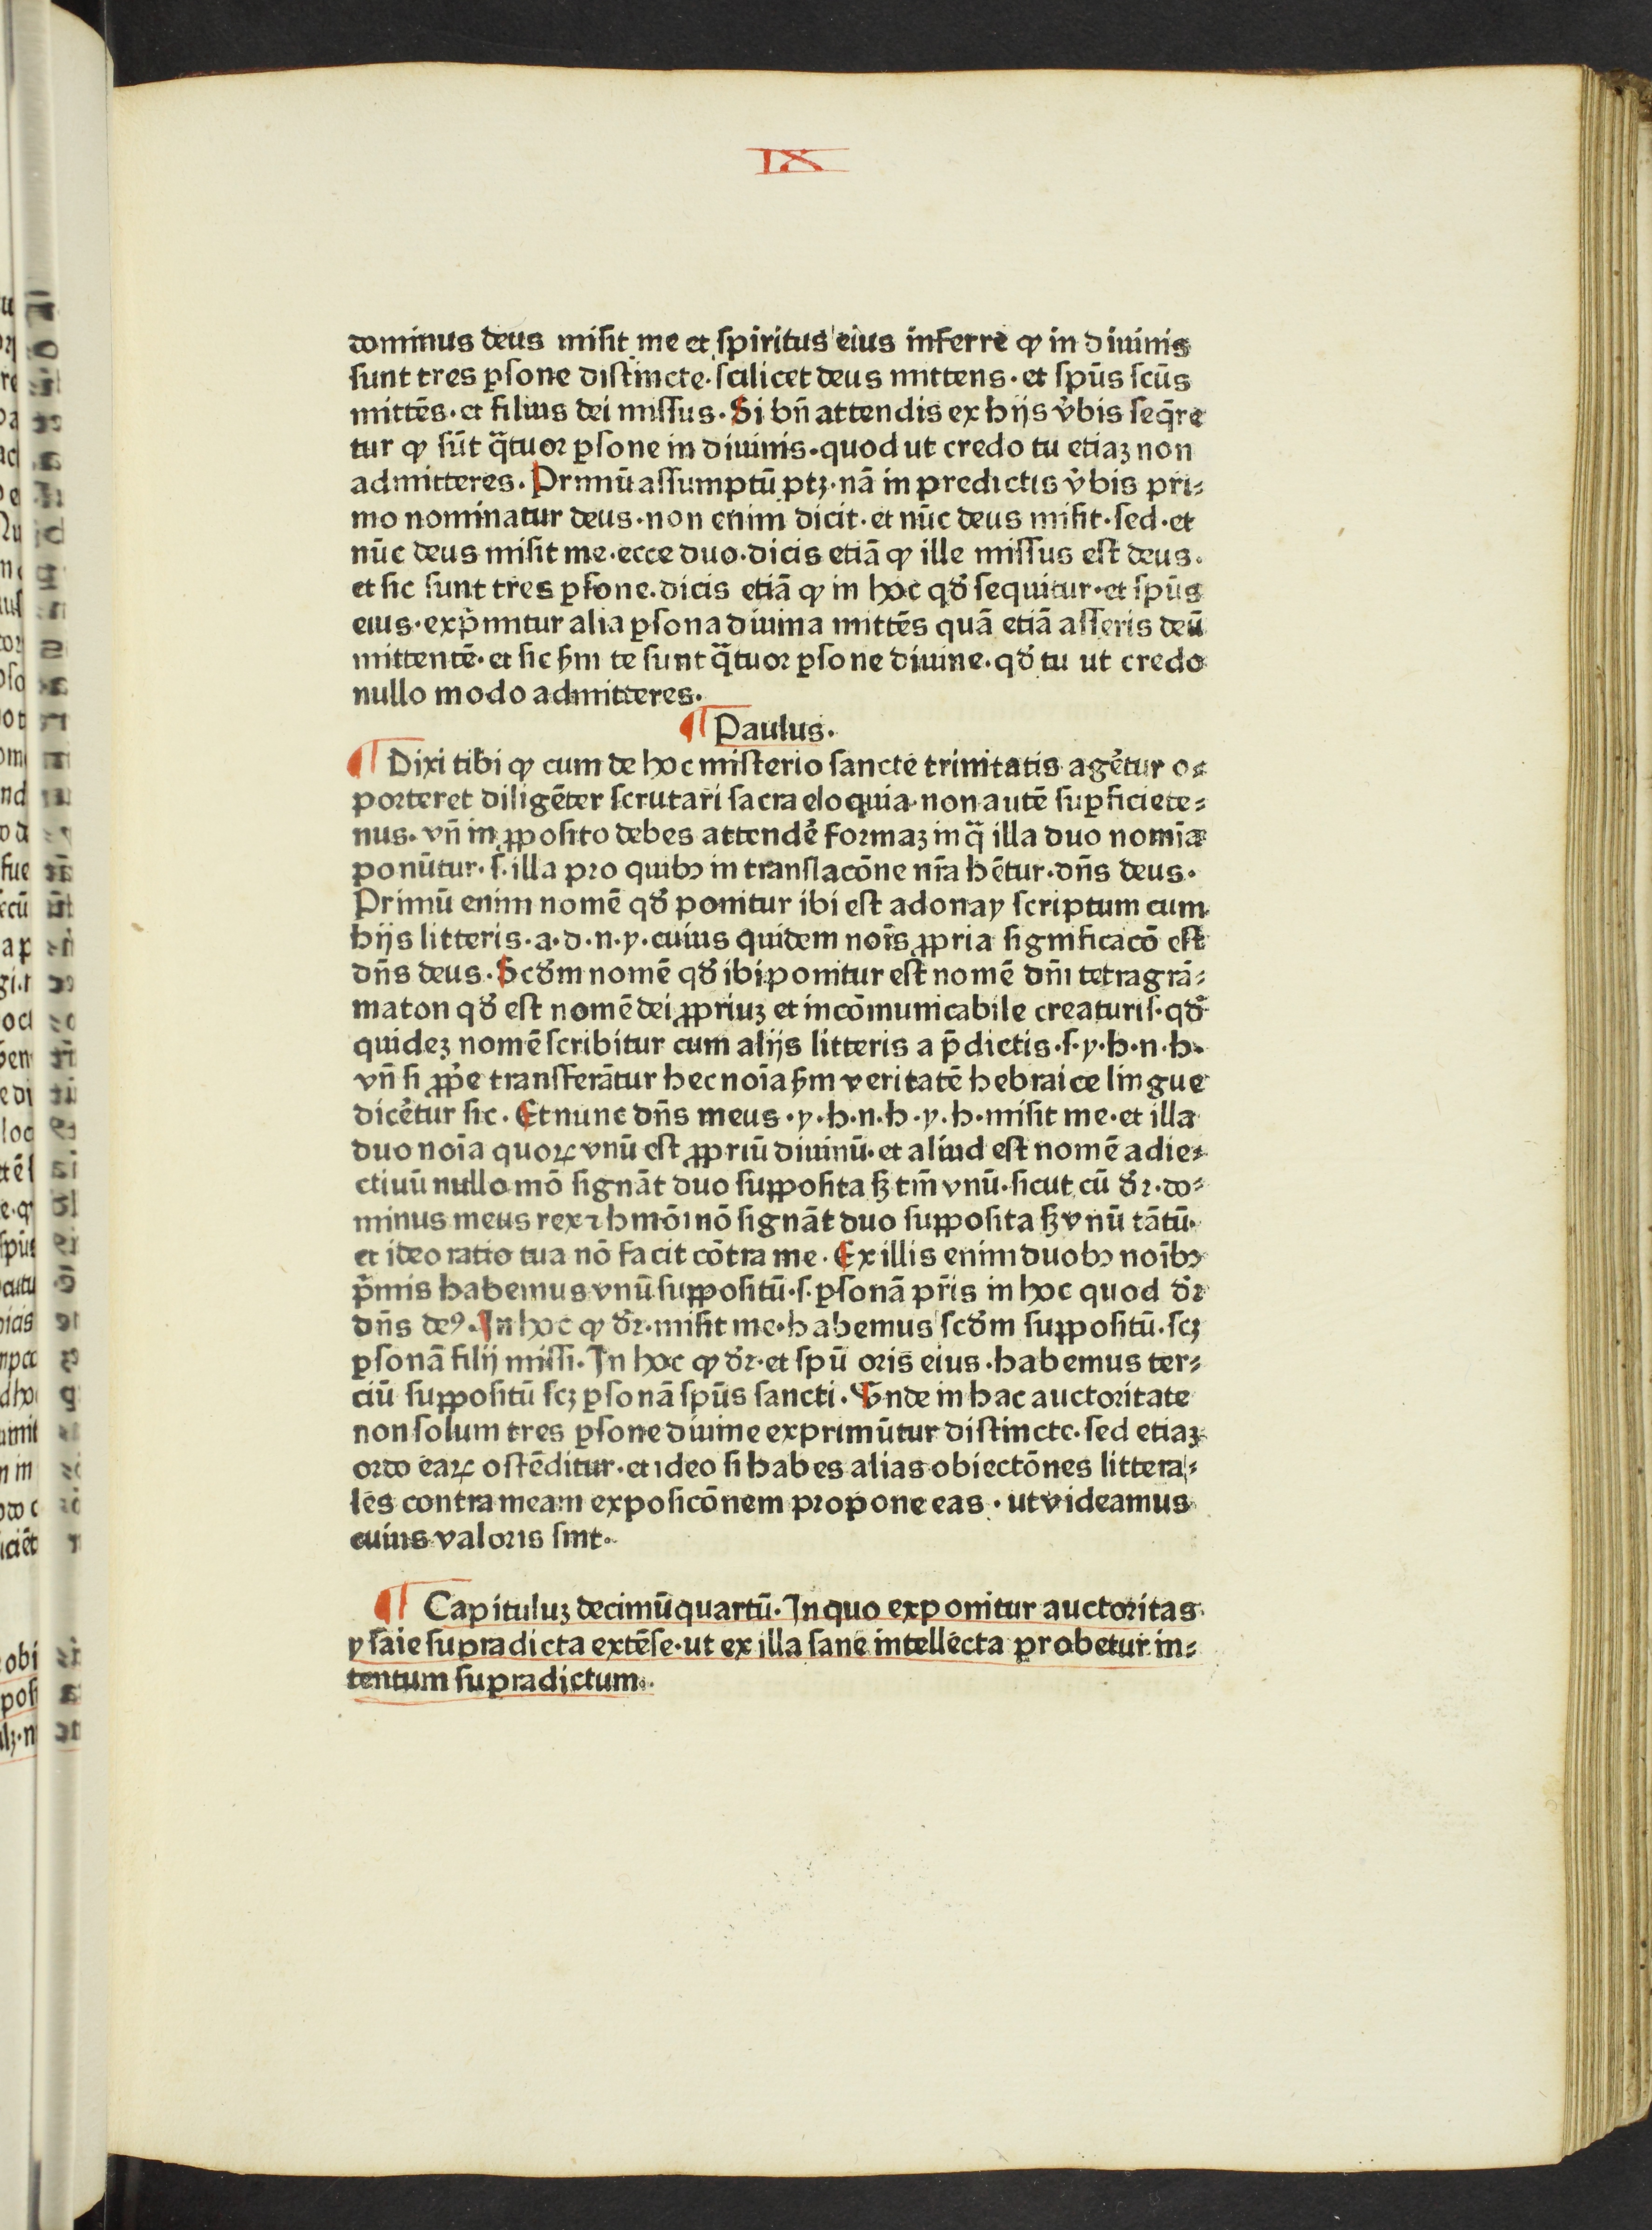 IX
dominus deus misit me et spiritus eius inferre ꝙ in diuinis
sunt tres ꝑsone distincte·scilicet deus mittens·et spūs scūs
mittēs·et filius dei missus·Si bn̄ attendis ex hijs v̉bis seq̄re
tur ꝙ sūt q̄tuor ꝑsone in diuinis·quod ut credo tu etiaꝫ non
admitteres·Primū assumptū ptꝫ·nā in predictis v̉bis pri⸗
mo nominatur deus·non enim dicit·et nūc deus misit·sed·et
nūc deus misit me·ecce duo·dicis etiā ꝙ ille missus est deus·
et sic sunt tres ꝑsone·dicis etiā ꝙ in hoc qđ sequitur·et spūs
eius·exp̄mitur alia ꝑsona diuina mittēs quā etiā asseris deū
mittentē·et sic ẜm te sunt q̄tuor ꝑsone diuine·qđ tu ut credo
nullo modo admitteres·
¶ Paulus·
¶ Dixi tibi ꝙ cum de hoc misterio sancte trinitatis agēt̉ur o⸗
porteret diligēter scrutari sacra eloquia·non autē suꝑficiete⸗
nus·vn̄ in ꝓposito debes attendē̉ formaꝫ in q̄ illa duo nomīa
ponūtur·s·illa pro quibꝰ in translacōne nr̄a hētur·dn̄s deus·
Primū enim nomē qđ ponitur ibi est adonay scriptum cum
hijs litteris·a·d·n·y·cuius quidem noīs ꝓpria significacō est
dn̄s deus·Scđm nomē qđ ibi ponitur est nomē dn̄i tetragrā⸗
maton qđ est nomē dei ꝓpriuꝫ et incōmunicabile creaturis·qđ
quideꝫ nomē scribitur cum alijs litteris a p̄dictis·s·y·h·n·h·
vn̄ si ꝓp̉e transferātur hec noīa ẜm veritatē hebraice lingue
dicēt̉ur sic·Et nunc dn̄s meus·y·h·n·h·y·h·misit me·et illa
duo noīa quoꝝ vnū est ꝓpriū diuinū·et aliud est nomē adie⸗
ctiuū nullo mō signāt duo supposita sꝫ tm̄ vnū·sicut cū dr̄·do⸗
minus meus rex ⁊ hmōi nō signāt duo supposita sꝫ vnū tātū·
et ideo ratio tua nō facit cōtra me·Ex illis enim duobꝰ noībꝰ
p̄mis habemus vnū suppositū·s·ꝑsonā pr̄is in hoc quod dr̄
dn̄s deꝰ·In hoc ꝙ dr̄·misit me·habemus scđm suppositū·scꝫ
ꝑsonā filij missi·In hoc ꝙ dr̄·et spū oris eius·habemus ter⸗
ciū suppositū scꝫ ꝑsonā spūs sancti·Vnde in hac auctoritate
non solum tres ꝑsone diuine exprimūtur distincte·sed etiaꝫ
ordo eaꝝ ostēditur·et ideo si habes alias obiectōnes littera⸗
les contra meam exposicōnem propone eas·ut videamus
cuius valoris sint·
¶ Capituluꝫ decimūquartū·In quo exponitur auctoritas
ysaie supradicta extēse·ut ex illa sane intellecta probetur in⸗
tentum supradictum·